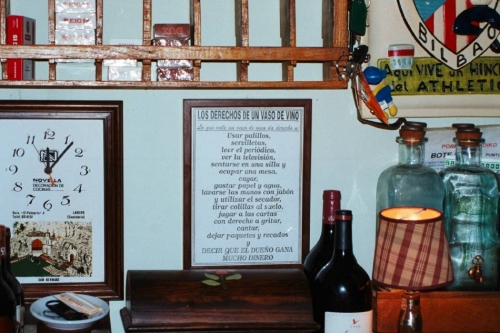 LOS DERECHOS DE UN VASO DE VINO
Lo que vale un vaso de vino da derecho a:
Usar palillos,
servilletas,
leer el periódico,
ver la televisión,
sentarse en una silla y
ocupar una mesa,
cagar,
gastar papel y agua,
lavarse las manos con jabón
y utilizar el secador,
tirar colillas al suelo,
jugar a las cartas
con derecho a gritar,
cantar,
dejar paquetes y recados
y
DECIR QUE EL DUEÑO GANA
MUCHO DINERO
12
11
1
10
2
9
3
8
4
7
6
5
NOVELLA
DECORACION DE
COCINAS
BILBAO
Aquí VIVE UN HINCHA
del ATHLETIC
BOTE